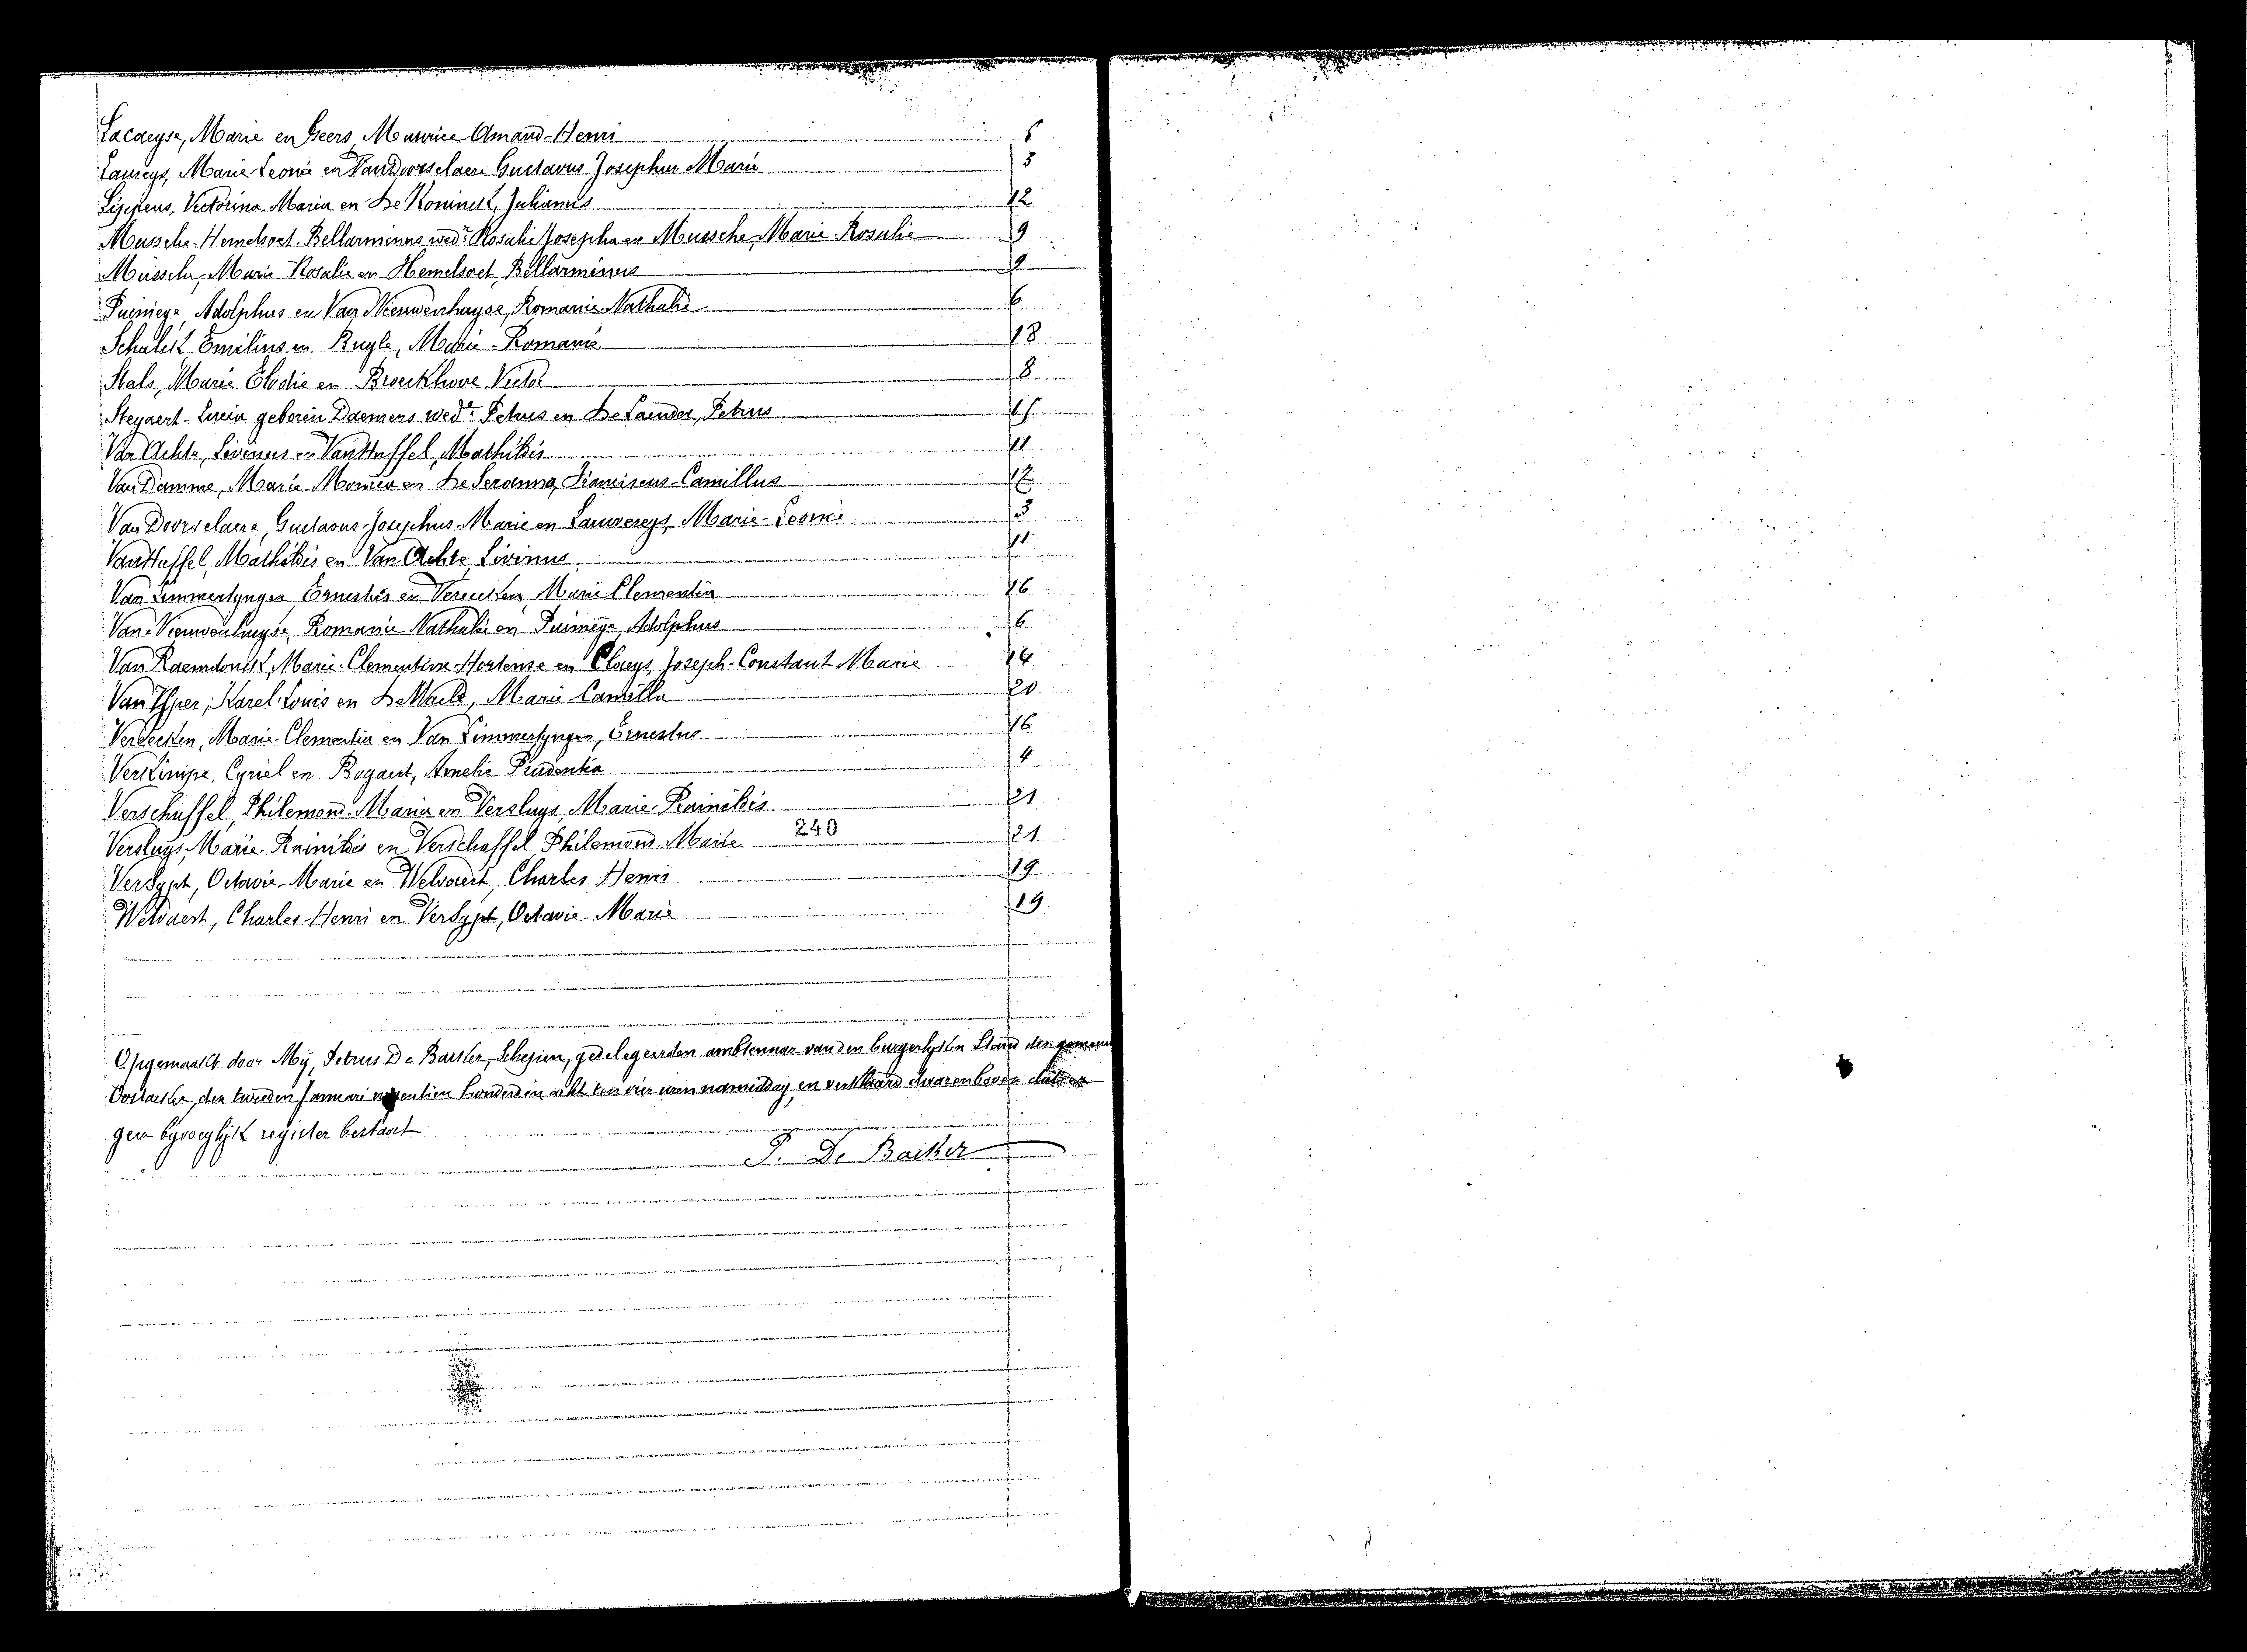 Lacaeyse, Marie en Geers, Maurice Amand-Henri
Laureys, Marie-Leonie en Van Doorselaere Gustavus Josephus Marie 3
Lippens, Victorina Maria en De Koninck, Julianus 12
Mussche-Hemelsoet-Bellarminus, wedr Rosalie Josepha en Mussche, Marie-Rosalie 9
Mussche, Marie Rosalie en Hemelsoet, Bellarminus 9
Puimège, Adolphus en Van Nieuwenhuyse, Romanie-Nathalie 6
Schalck, Emilius en Ruyle, Marie-Romanie 18
Stals, Marie Elodie en Broeckhove Victor 8
Steyaert- geboren Daemers wede Petrus en De Petrus
Van Achte, Livinus en Van Haffel, Mathildis 11
Van Damme, Marie- en De Franciscus-Camillus
Van Doorselaere, Gustavus-Josephus-Marie en Lauwereys, Marie-Leonie 3
Van Haffel, Mathildis en Van Achte Livinus 11
Van Limmerlyngen, Ernestus en Vereecken, Marie Clementia 16
Van Nieuwenhuyse, Romanie-Nathalie en Puimège, Adolphus 6
Van Raemdonck, Marie-Clementine-Hortense en Claeys, Joseph-Constant Marie 14
Van Yper, Karel-Louis en De Maele, Marie-Camilla 20
Vereecken, Marie-Clementia en Van Limmerlyngen, Ernestus 16
Verkimpe, Cyriel en Bogaert, Amelie-Prudentia 4
Verschaffel, Philemond-Maria en Versluys, Marie-Rainildis 21
Versluys, Marie-Rainildis en Verschaffel Philemond-Marie 240 21
Versypt, Octavie-Marie en Welvaert, Charles-Henri 19
Welvaert, Charles-Henri en Versypt, Octavie-Marie 19
Opgemaakt door Mij, Petrus De Backer, Schepen, gedelegeerden ambtenaar van den burgerlyken Stand der gemeente
Oostacker, den tweeden Januari negentien honderd en acht ten vier uren namiddag, en verklaard daarenboven dat er
geen byvoeglijk register bestaat
P. De Backer